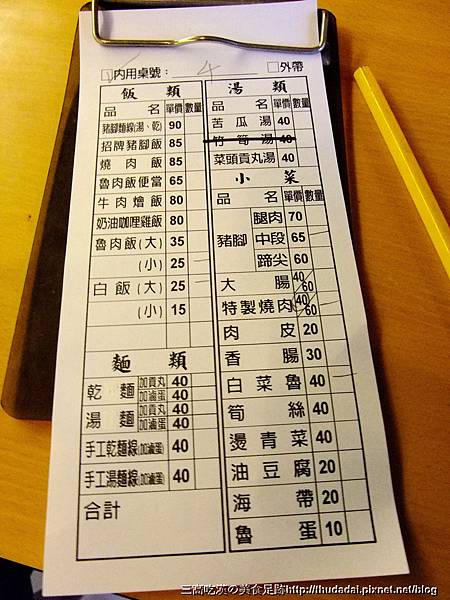 □内用桌號： 4 □外帶
飯類
品名 單價 數量
豬腳麵線(湯、乾) 90
招牌豬腳飯 85
燒肉飯 85
魯肉飯便當 65
牛肉燴飯 80
奶油咖哩雞飯 80
魯肉飯(大) 35
(小) 25
白飯(大) 25
(小) 15
麵類
品名 單價 數量
乾麵 加貢丸 40
加滷蛋 40
湯麵 加貢丸 40
加滷蛋 40
手工乾麵線(加滷蛋) 40
手工湯麵線(加滷蛋) 40
合計
湯類
品名 單價 數量
苦瓜湯 40
竹筍湯 40
菜頭貢丸湯 40
小菜
品名 單價 數量
豬腳 腿肉 70
中段 65
蹄尖 60
大腸 40/60
特製燒肉 40/60
肉皮 20
香腸 30
白菜魯 40
筍絲 40
燙青菜 40
油豆腐 20
海帶 20
魯蛋 10
三高吃漢の美食足跡http://thudadai.pixnet.net/blog